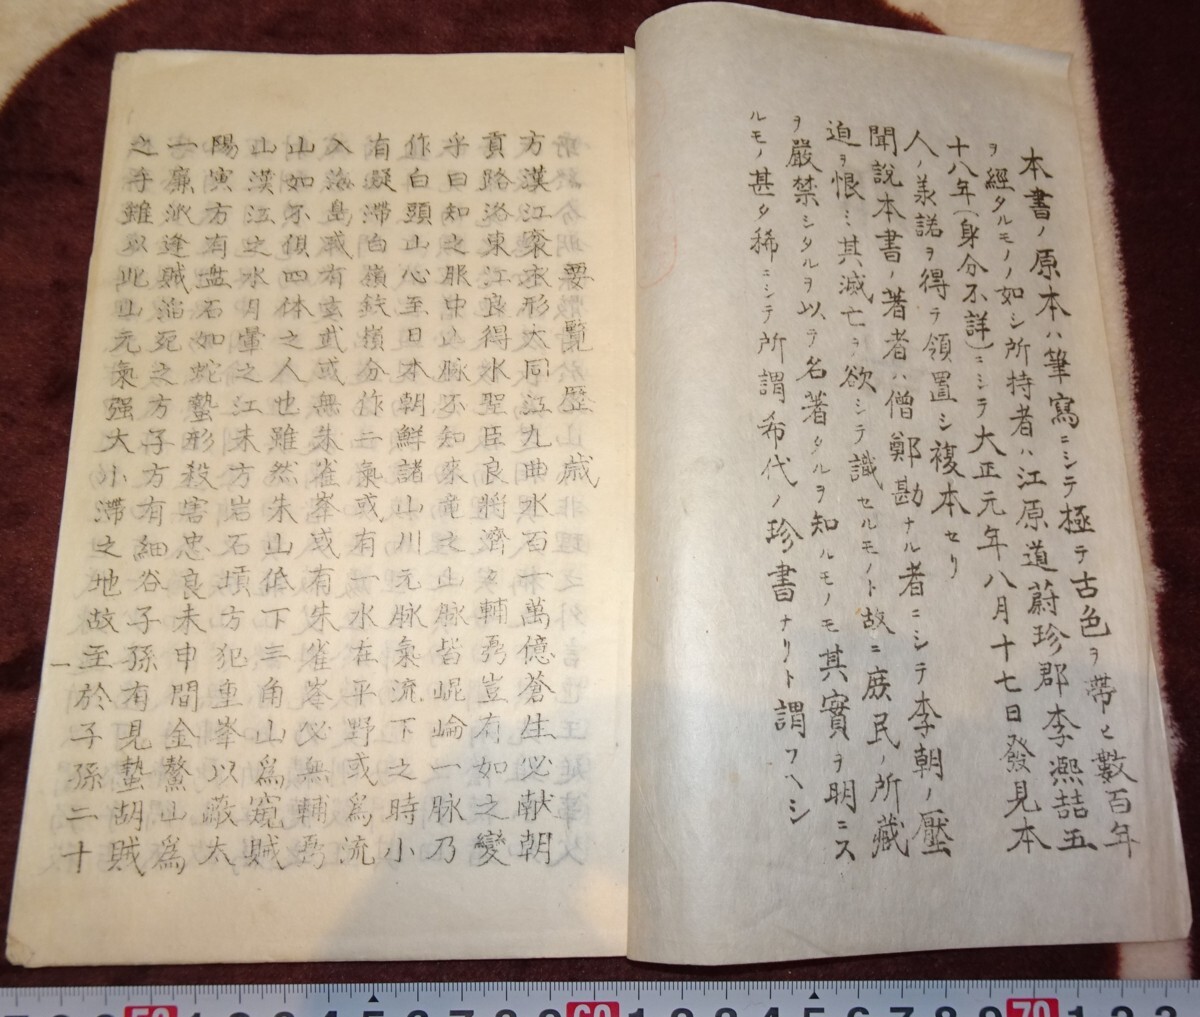 本書ノ原本ハ筆寫ニシテ極テ古色ヲ帯ヒ數百年
ヲ經タルモノノ如シ所持者ハ江原道蔚珍郡李凞喆五
十八年(身分不詳)ニシテ大正元年八月十七日發見本
人ノ承諾ヲ得テ領置シ複本セリ
聞説本書ノ著者ハ僧鄭勘ナル者ニシテ李朝ノ壓
迫ヲ恨ミ其滅亡ヲ欲シテ識セルモノト故ニ庶民ノ所藏
ヲ嚴禁シタルヲ以テ名著タルヲ知ルモノモ其實ヲ明ニス
ルモノ甚タ稀ニシテ所謂希代ノ珍書ナリト謂フヘシ
要覽歴歳
方漢江衮衣形大同江九曲水石一萬億蒼生必献朝
貢路洛東江良得水聖臣良將濟々輔弼豈有如之變
乎曰知之耶中山脉不知來竜之山脉皆崐崘一脉乃
作白頭山心至日本朝鮮諸山川元脉氣流下之時小
有凝滞白嶺鉄嶺分作一氣或有一水在平野或爲流
入海島或有玄武或無朱雀峯或有朱雀峯必無輔弼
山如不俱四体之人也雖然朱山低下三角山爲窺賊
山漢江之水月暈之江未方岩石填方犯重峯以蔽太
陽寅方有盤石如蛇蟄形殺害忠良未申間金鰲山爲
一廉派逢賊溢死之方子方有細谷子孫有見蟄胡賊
之弄雖以此山元氣强大小滞之地故至於子孫二十
一
50
60
70